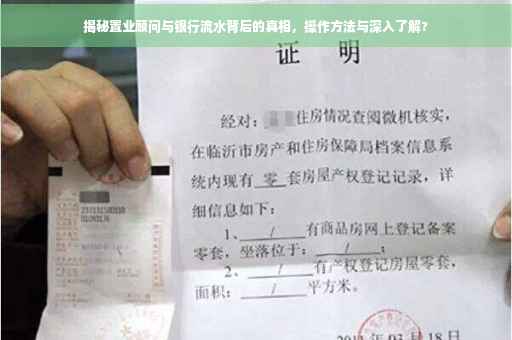 揭秘置业顾问与银行流水背后的真相，操作方法与深入了解？
证 明
经对： 住房情况查阅微机核实，
在临沂市房产和住房保障局档案信息系
统内现有 零 套房屋产权登记记录，详
细信息如下：
1、 / 有商品房网上登记备案
零套，坐落位于： / ；
2、 / 有产权登记房屋零套，
面积： / 平方米。
03月18日